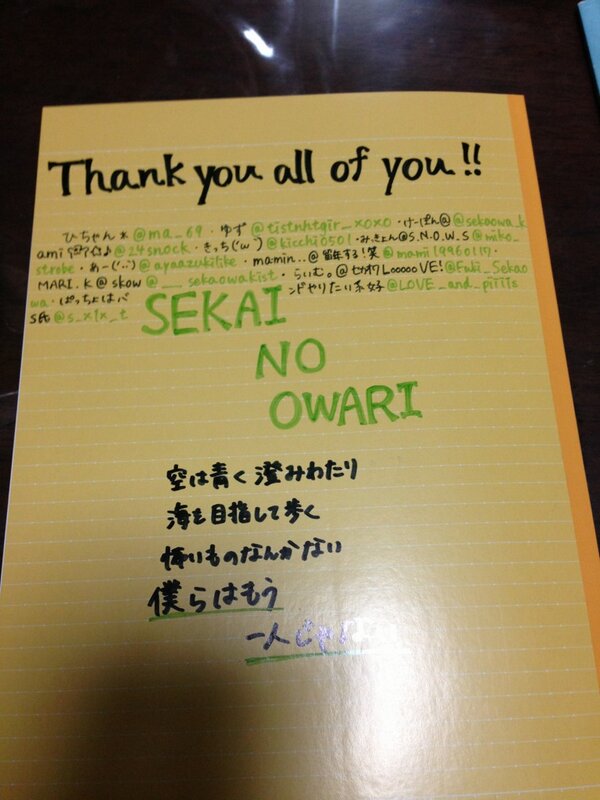 Thank you all of you!!
ひちゃん*@ma_69・ゆず@tistnhtgir_xoxo・けーぽん@@sekaowa_k
ami @24snock・きっち(´ω`)@kicchi0501・みきょん@S.N.O.W.S@miko_
strobe・あー(・ω・)@ayaazukilike・mamin..@留年する!笑@mami19960117・
MARI.K@skow@___sekaowakist・らいむ。@セカオワLoooooVE!@Fuki_Sekao
wa・ぱっちょはバンドやりたい系女子@LOVE_and_piiiis
@s_x1x_t
SEKAI
NO
OWARI
空は青く澄みわたり
海を目指して歩く
怖いものなんかない
僕らはもう
一人じゃ